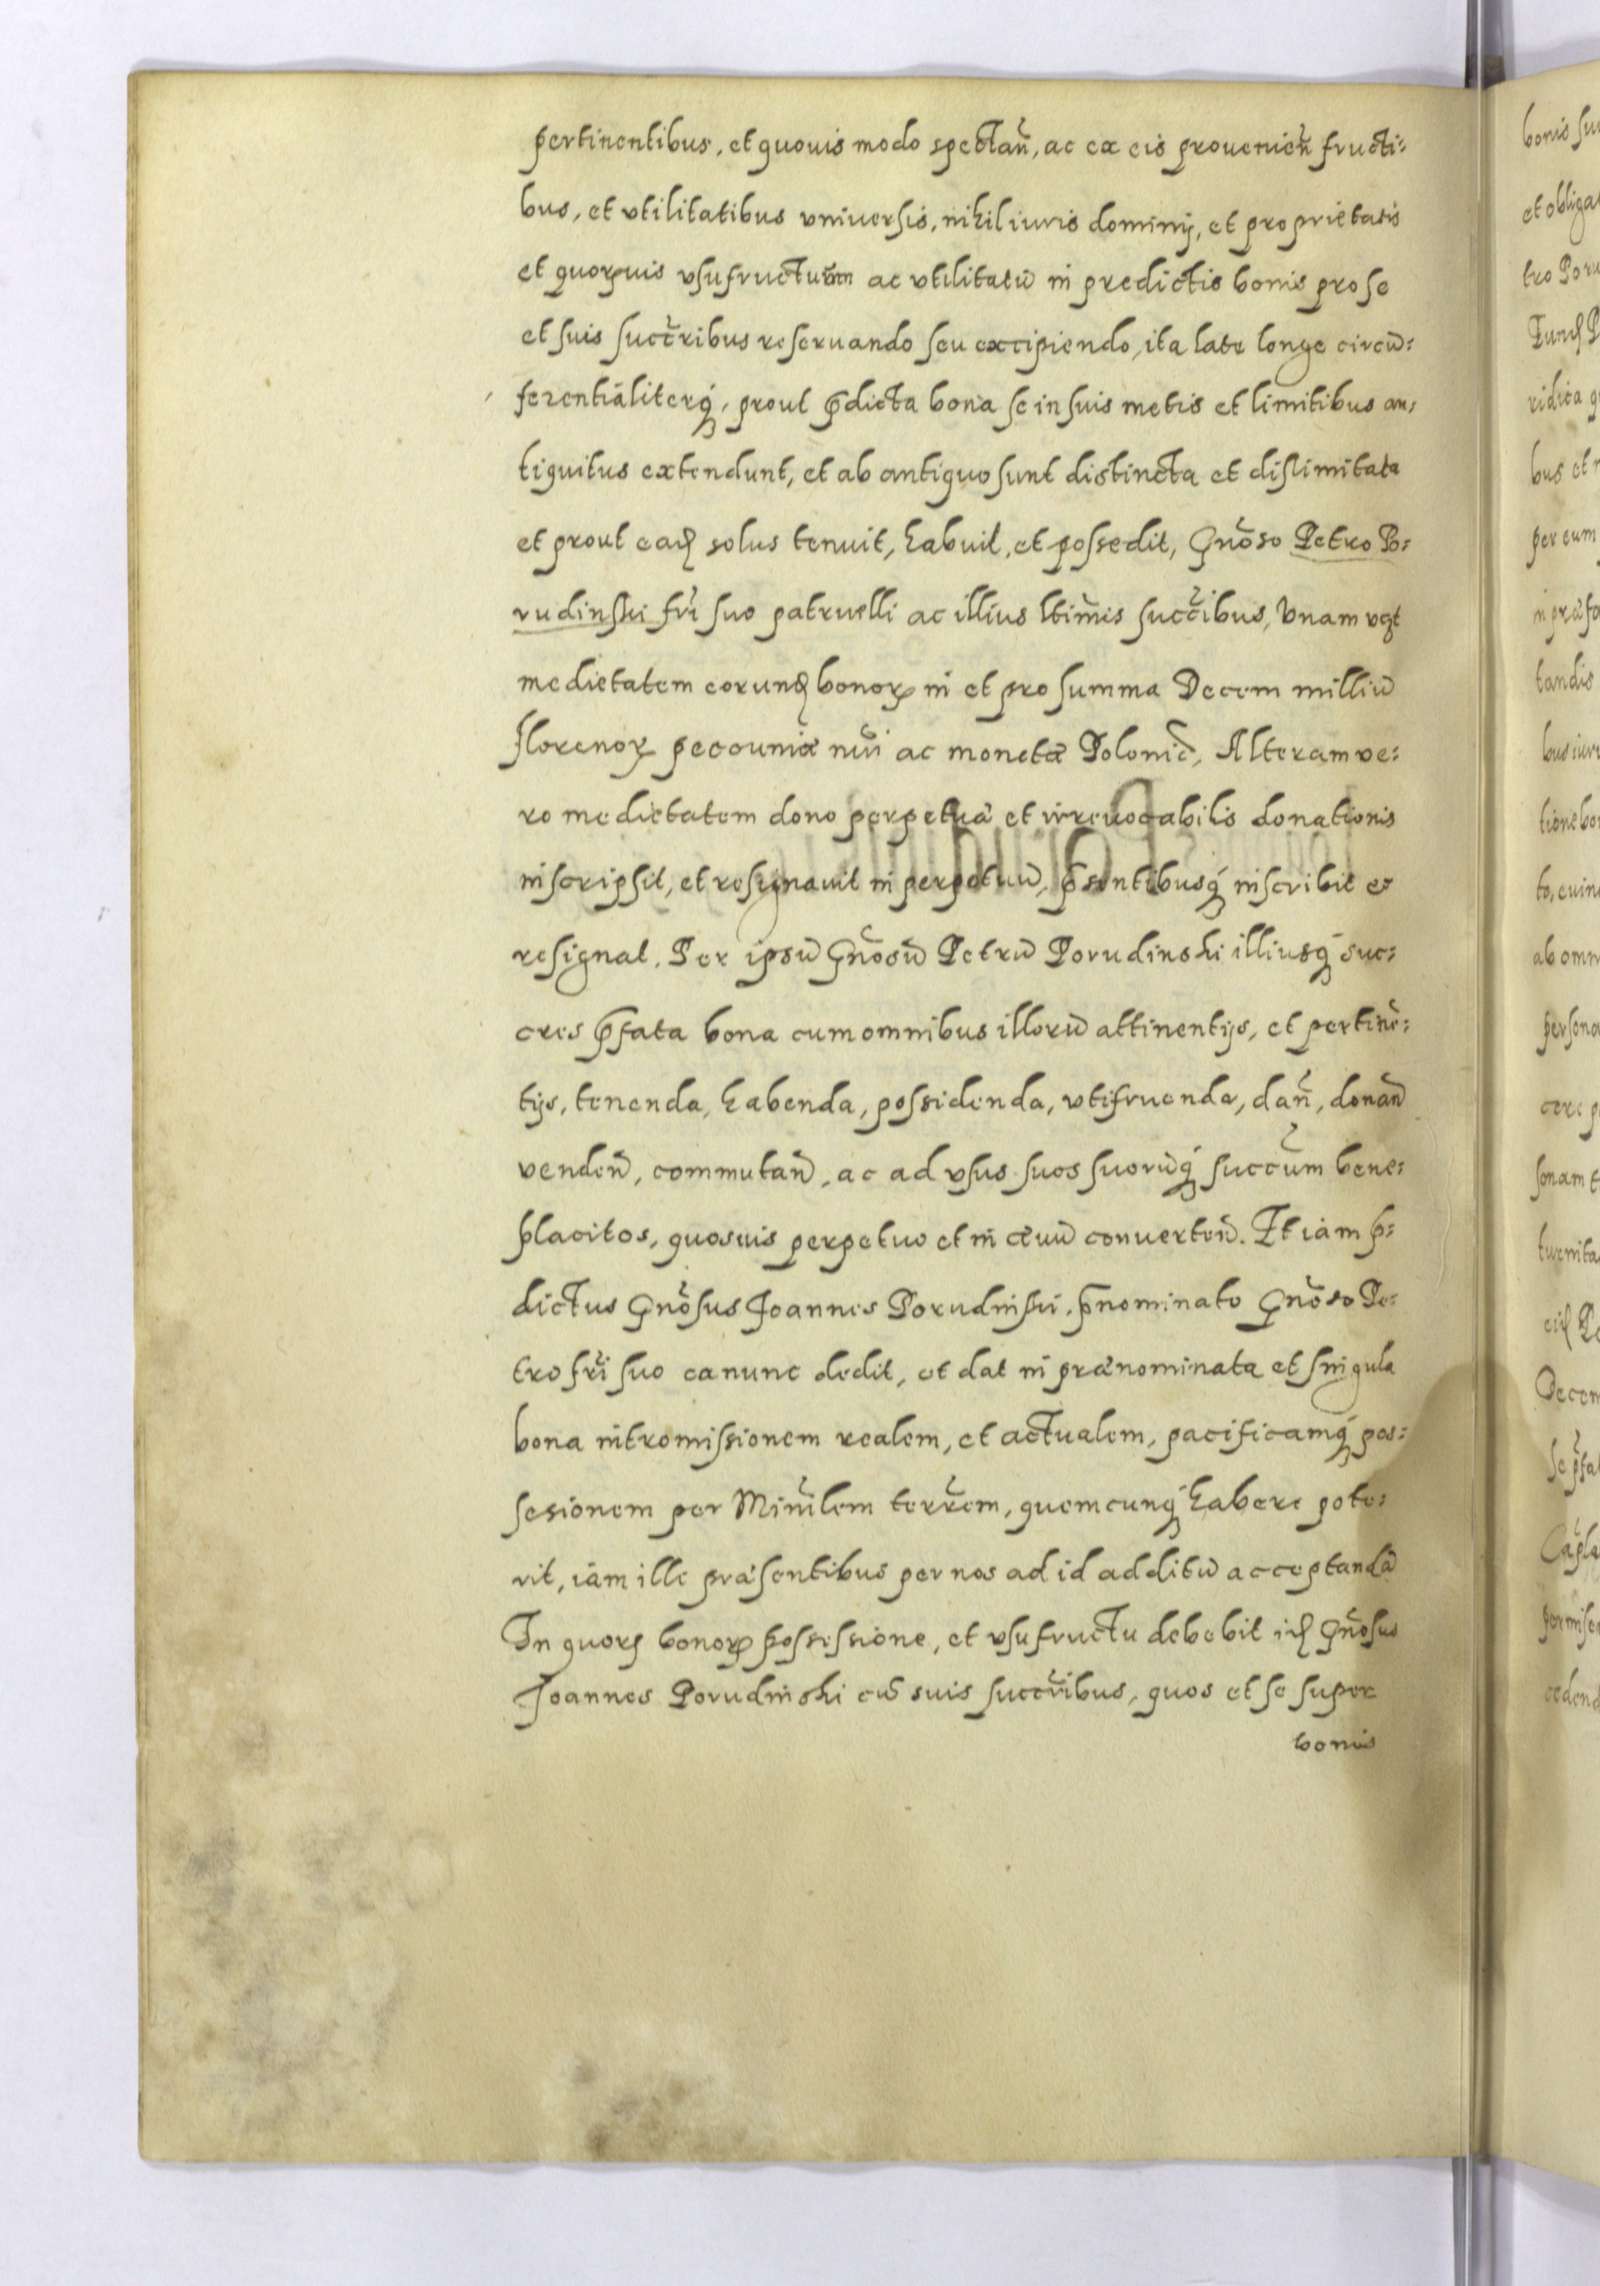 pertinentibus, et quouis modo spectan̄, ac ex eis prouenien̄ fructi=
bus, et vtilitatibus vniuersis, nihil iuris dominij, et proprietatis
et quorumuis vsufructuum ac vtilitatū in predictis bonis pro se
et suis succribus reseruando seu excipiendo, ita late longe circū=
ferentialiterq́, prout p̄dicta bona se in suis metis et limitibus an=
tiquitus extendunt, et ab antiquo sunt distincta et dislimitata
et prout eadꝫ solus tenuit, habuit, et possedit, Gnōso Petro Po=
rudinski fr̄i suo patruelli ac illius ltimis succibus, Vnam vꝫt
medietatem eorundꝫ bonoꝝ in et pro summa Decem milliū
florenoꝝ pecuniæ nūi ac monetæ Polonic̄, Alteram ve=
ro medietatem dono perpetuæ et irreuocabilis donationis
inscripsit, et resignauit in perpetuū, p̄sentibusq́ inscribit et
resignat. Per ipsū Gnōsū Petrū Porudinski illiusq́ suc=
cres p̄fata bona cum omnibus illorū attinentijs, et pertinē=
tijs, tenenda, habenda, possidenda, vtifruenda, dan̄, donan̄
venden̄, commutan̄, ac ad vsus suos suorūq́ succum bene=
placitos, quosuis perpetuo et in æuū conuerten̄. Et iam p̄=
dictus Gnōsus Joannes Porudinski. p̄nominato Gnōso Pe=
tro fr̄i suo ea nunc dedit, et dat in prænominata et singula
bona intromissionem realem, et actualem, pacificamq́ pos=
sesionem per Minilem terrem, quemcunq́ habere pote=
rit, iam ille præsentibus per nos ad id additū acceptandā
In quoꝝ bonoꝝ possessione, et vsufructu debebit idꝫ Gnōsus
Joannes Porudinski cū suis succribus, quos et se super
bonis